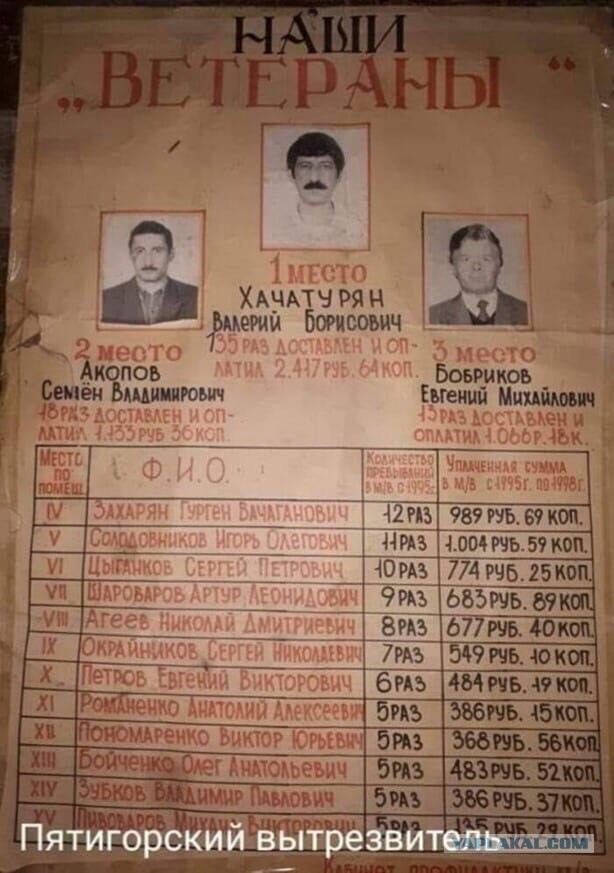 НАШИ
„ВЕТЕРАНЫ“
1 МЕСТО
ХАЧАТУРЯН
ВАЛЕРИЙ БОРИСОВИЧ
135 РАЗ ДОСТАВЛЕН И ОП-
ЛАТИЛ 2.417 РУБ. 64 КОП.
2 МЕСТО
АКОПОВ
СЕМЁН ВЛАДИМИРОВИЧ
18 РАЗ ДОСТАВЛЕН И ОП-
ЛАТИЛ 1.133 РУБ 36 КОП.
3 МЕСТО
БОБРИКОВ
ЕВГЕНИЙ МИХАЙЛОВИЧ
13 РАЗ ДОСТАВЛЕН И
ОПЛАТИЛ 1.066 Р. 18 К.
МЕСТО ПО ПОМЕЩ. Ф.И.О. КОЛИЧЕСТВО ПРЕБЫВАНИЙ В М/В С 1995г. УПЛАЧЕННАЯ СУММА В М/В С 1995г. ПО 1998г.
IV ЗАХАРЯН ГУРГЕН ВАЧАГАНОВИЧ 12 РАЗ 989 РУБ. 69 КОП.
V СОЛОДОВНИКОВ ИГОРЬ ОЛЕГОВИЧ 11 РАЗ 1.004 РУБ. 59 КОП.
VI ЦЫГАНКОВ СЕРГЕЙ ПЕТРОВИЧ 10 РАЗ 774 РУБ. 25 КОП.
VII ШАРОВАРОВ АРТУР ЛЕОНИДОВИЧ 9 РАЗ 683 РУБ. 89 КОП.
VIII АГЕЕВ НИКОЛАЙ ДМИТРИЕВИЧ 8 РАЗ 677 РУБ. 40 КОП.
IX ОКРАЙНИКОВ СЕРГЕЙ НИКОЛАЕВИЧ 7 РАЗ 549 РУБ. 10 КОП.
X ПЕТРОВ ЕВГЕНИЙ ВИКТОРОВИЧ 6 РАЗ 484 РУБ. 19 КОП.
XI РОМАНЕНКО АНАТОЛИЙ АЛЕКСЕЕВИЧ 5 РАЗ 386 РУБ. 15 КОП.
XII ПОНОМАРЕНКО ВИКТОР ЮРЬЕВИЧ 5 РАЗ 368 РУБ. 56 КОП
XIII БОЙЧЕНКО ОЛЕГ АНАТОЛЬЕВИЧ 5 РАЗ 483 РУБ. 52 КОП.
XIV ЗУБКОВ ВЛАДИМИР ПАВЛОВИЧ 5 РАЗ 386 РУБ. 37 КОП.
XV ПИВОВАРОВ МИХАИЛ ВИКТОРОВИЧ 5 РАЗ 135 РУБ. 29 КОП
Пятигорский вытрезвитель
YAPLAKAL.COM
КАБИНЕТ ПРОФИЛАКТИКИ